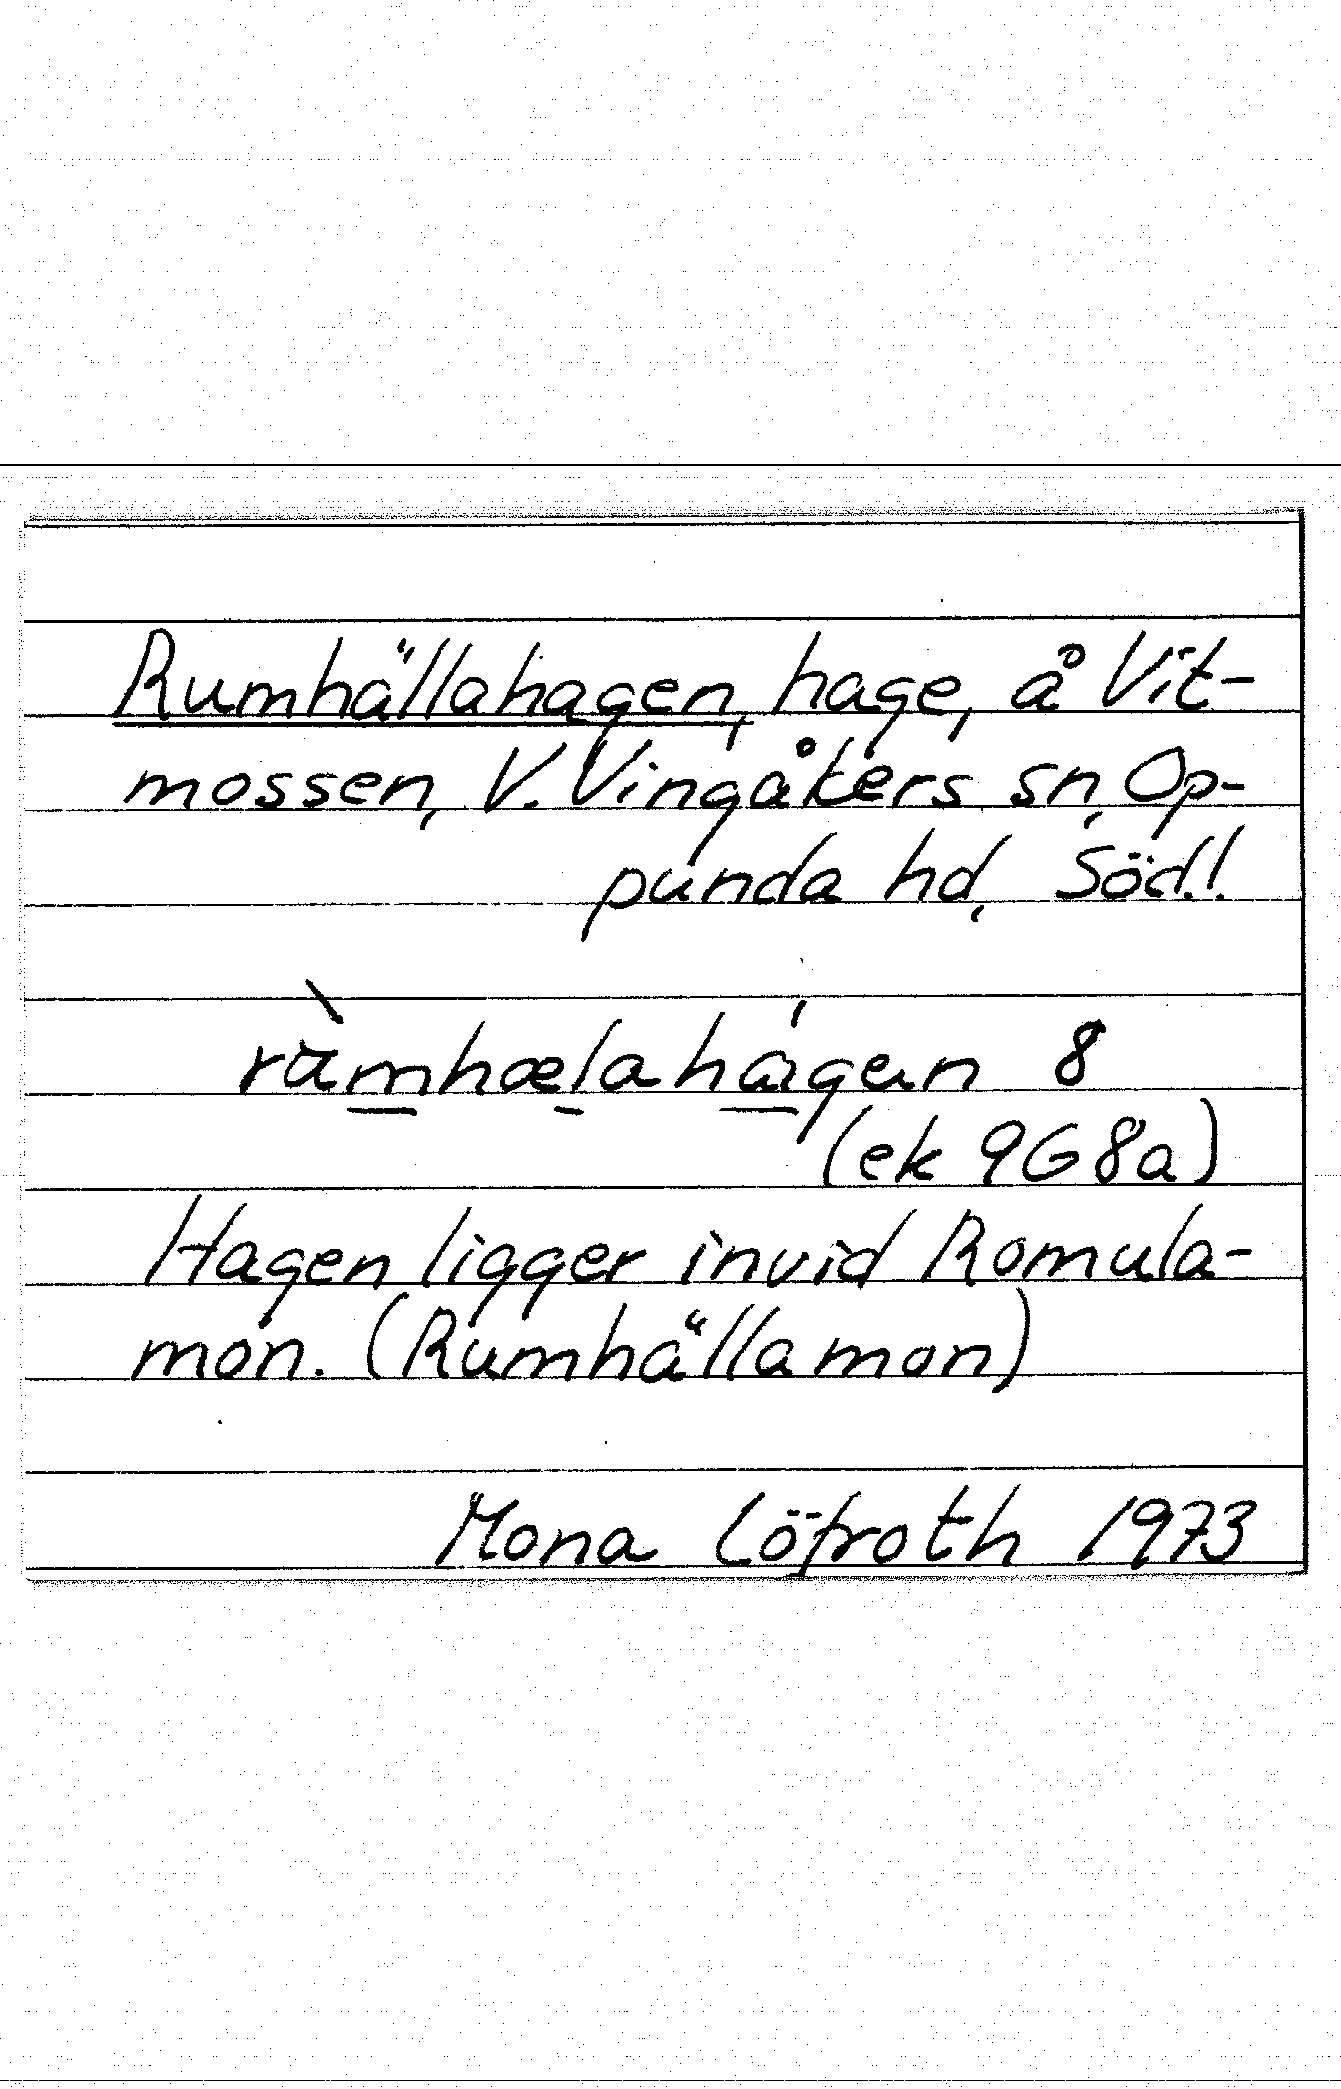 Rumhällahagen, hage, å Vit-
mossen, V. Vingåkers sn, Op-
punda hd, Söd.!
(ek 9G8a)
Hagen ligger invid Romula-
mon. (Rumhällamon)
Mona Löfroth 1973